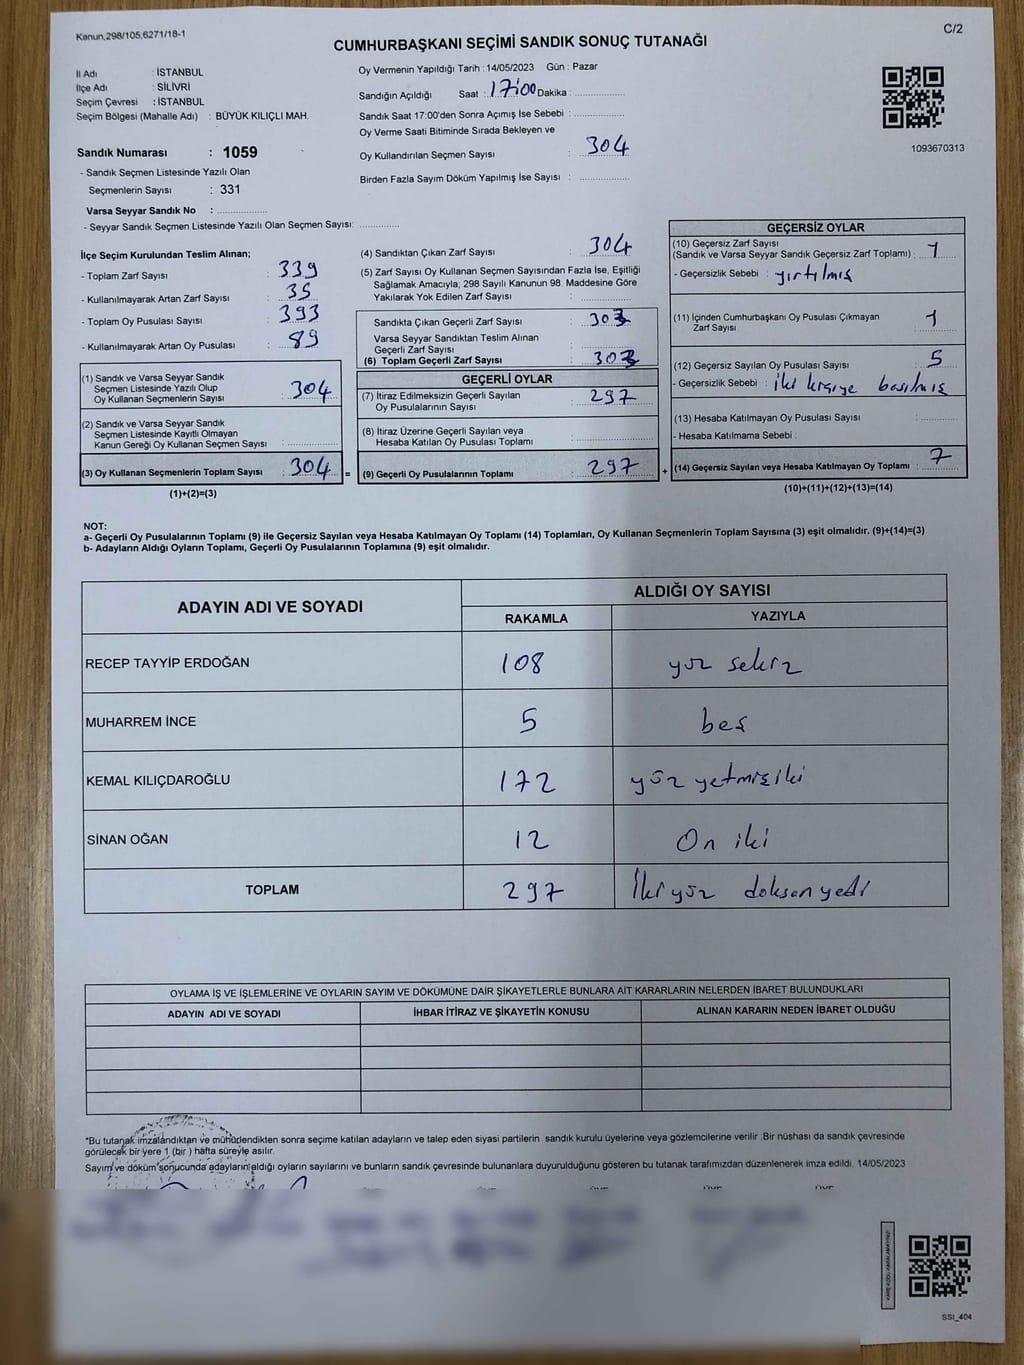 Kanun,298/105,6271/18-1
C/2
CUMHURBAŞKANI SEÇİMİ SANDIK SONUÇ TUTANAĞI
İl Adı : İSTANBUL
İlçe Adı : SİLİVRİ
Seçim Çevresi : İSTANBUL
Seçim Bölgesi (Mahalle Adı) : BÜYÜK KILIÇLI MAH.
Sandık Numarası : 1059
- Sandık Seçmen Listesinde Yazılı Olan
Seçmenlerin Sayısı : 331
Varsa Seyyar Sandık No : ..................
- Seyyar Sandık Seçmen Listesinde Yazılı Olan Seçmen Sayısı: ..............
Oy Vermenin Yapıldığı Tarih : 14/05/2023 Gün : Pazar
Sandığın Açıldığı Saat : 17:00 Dakika : ..................
Sandık Saat 17:00'den Sonra Açımış İse Sebebi : ..................
Oy Verme Saati Bitiminde Sırada Bekleyen ve
Oy Kullandırılan Seçmen Sayısı : 304
Birden Fazla Sayım Döküm Yapılmış İse Sayısı : ..................
1093670313
İlçe Seçim Kurulundan Teslim Alınan;
- Toplam Zarf Sayısı : 339
- Kullanılmayarak Artan Zarf Sayısı : 35
- Toplam Oy Pusulası Sayısı : 393
- Kullanılmayarak Artan Oy Pusulası : 89
(1) Sandık ve Varsa Seyyar Sandık
Seçmen Listesinde Yazılı Olup
Oy Kullanan Seçmenlerin Sayısı : 304
(2) Sandık ve Varsa Seyyar Sandık
Seçmen Listesinde Kayıtlı Olmayan
Kanun Gereği Oy Kullanan Seçmen Sayısı : ..................
(3) Oy Kullanan Seçmenlerin Toplam Sayısı : 304 =
(1)+(2)=(3)
(4) Sandıktan Çıkan Zarf Sayısı : 304
(5) Zarf Sayısı Oy Kullanan Seçmen Sayısından Fazla İse, Eşitliği
Sağlamak Amacıyla; 298 Sayılı Kanunun 98. Maddesine Göre
Yakılarak Yok Edilen Zarf Sayısı : ..................
Sandıkta Çıkan Geçerli Zarf Sayısı : 303
Varsa Seyyar Sandıktan Teslim Alınan
Geçerli Zarf Sayısı : ..................
(6) Toplam Geçerli Zarf Sayısı : 303
GEÇERLİ OYLAR
(7) İtiraz Edilmeksizin Geçerli Sayılan
Oy Pusulalarının Sayısı : 297
(8) İtiraz Üzerine Geçerli Sayılan veya
Hesaba Katılan Oy Pusulası Toplamı : ..................
(9) Geçerli Oy Pusulalarının Toplamı : 297 +
GEÇERSİZ OYLAR
(10) Geçersiz Zarf Sayısı
(Sandık ve Varsa Seyyar Sandık Geçersiz Zarf Toplamı) : 1
- Geçersizlik Sebebi : yırtılmış
(11) İçinden Cumhurbaşkanı Oy Pusulası Çıkmayan
Zarf Sayısı : 1
(12) Geçersiz Sayılan Oy Pusulası Sayısı : 5
- Geçersizlik Sebebi : iki kişiye basılmış
(13) Hesaba Katılmayan Oy Pusulası Sayısı : ..............
- Hesaba Katılmama Sebebi :
(14) Geçersiz Sayılan veya Hesaba Katılmayan Oy Toplamı : 7
(10)+(11)+(12)+(13)=(14)
NOT:
a- Geçerli Oy Pusulalarının Toplamı (9) ile Geçersiz Sayılan veya Hesaba Katılmayan Oy Toplamı (14) Toplamları, Oy Kullanan Seçmenlerin Toplam Sayısına (3) eşit olmalıdır. (9)+(14)=(3)
b- Adayların Aldığı Oyların Toplamı, Geçerli Oy Pusulalarının Toplamına (9) eşit olmalıdır.
ADAYIN ADI VE SOYADI
ALDIĞI OY SAYISI
RAKAMLA YAZIYLA
RECEP TAYYİP ERDOĞAN 108 yüz sekiz
MUHARREM İNCE 5 beş
KEMAL KILIÇDAROĞLU 172 yüz yetmişiki
SİNAN OĞAN 12 On iki
TOPLAM 297 İkiyüz doksanyedi
OYLAMA İŞ VE İŞLEMLERİNE VE OYLARIN SAYIM VE DÖKÜMÜNE DAİR ŞİKAYETLERLE BUNLARA AİT KARARLARIN NELERDEN İBARET BULUNDUKLARI
ADAYIN ADI VE SOYADI İHBAR İTİRAZ VE ŞİKAYETİN KONUSU ALINAN KARARIN NEDEN İBARET OLDUĞU
*Bu tutanak imzalandıktan ve mühürlendikten sonra seçime katılan adayların ve talep eden siyasi partilerin sandık kurulu üyelerine veya gözlemcilerine verilir .Bir nüshası da sandık çevresinde
görülecek bir yere 1 (bir ) hafta süreyle asılır.
Sayım ve döküm sonucunda adayların aldığı oyların sayılarını ve bunların sandık çevresinde bulunanlara duyurulduğunu gösteren bu tutanak tarafımızdan düzenlenerek imza edildi. 14/05/2023
SSI_404